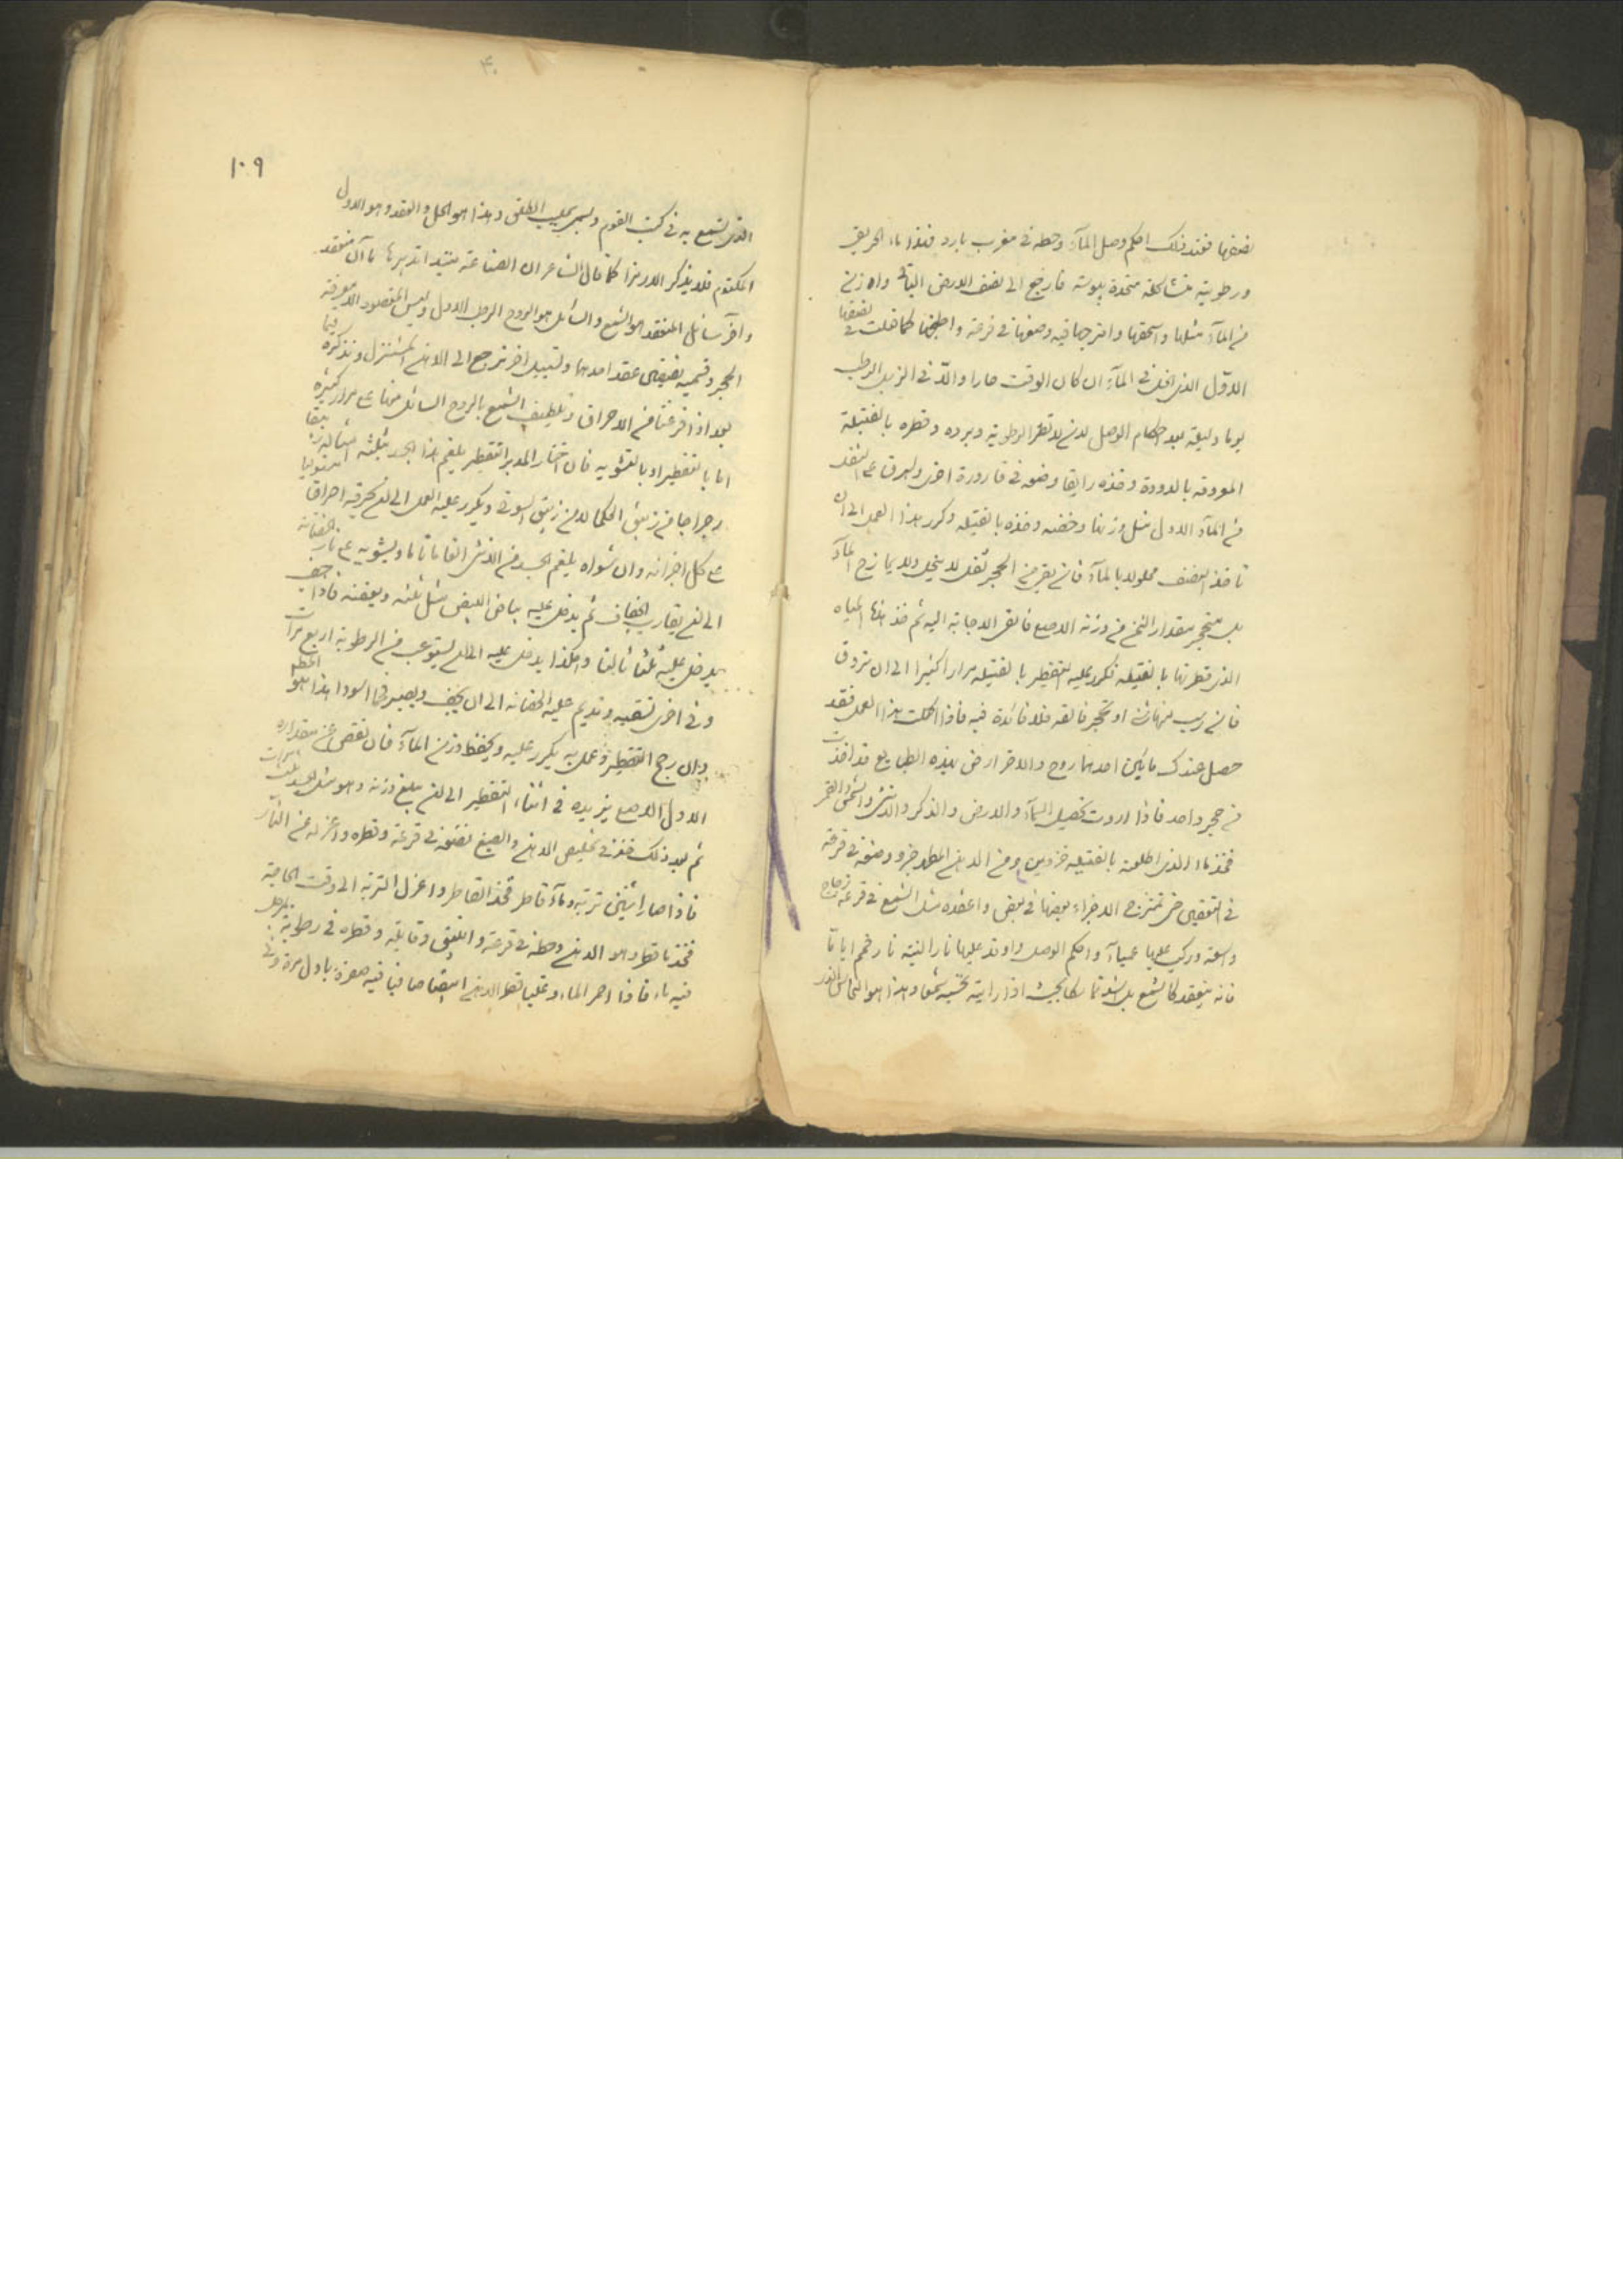 نصفها فعند ذلك احكم وصل المآء وحطه فى مغرب بارد فهذا ماء الحريق
ورطوبته متشاكلة متحدة بيبوسته فارجع الى نصف الارض الباقى واوزن
من المآء مثلها واسحقها وامزجها فيه وضعها فى قرعة واطبخها كما فعلت فى نصفها
الاوّل الذى انحل فى المآء ان كان الوقت حارا والّا فى الزبل الرطب
يوما وليلة بعد احكام الوصل لان لا تطير الرطوبة وبرده وقطره بالفتيلة
من المآء الاول مثل وزنها وخضه وخذه بالفتيلة وكرر هذا العمل الى ان
تاخذ النصف محلولا بالمآء فان بقى من الحجر ثفل لا ينحل ولا يمازج المآء
بل يتحجر مقدار الثمن من وزنه الاصلى فالق الاجابة اليه ثم خذ هذه المياه
الذى قطرتها بالفتيلة فكرر عليه التقطير بالفتيلة مرارا كثيرا الى ان تروق
فان رسب منها شئ او تحجر فالقه فلا فائدة فيه فاذا اكملت هذا العمل فقد
حصل عندك مائين احدهما روح والاخر ارض بهذه الطبايع قد اخذت
من حجر واحد فاذا اردت تحصيل السمآء والارض والذكر والانثى والشمس والقمر
فخذ ماء الذى اطلعته بالفتيلة جزوين ومن الدهن المطهر جزو وضعه فى قرعة
فى التعفين حتى تمتزج الاجزاء بعضها فى بعض واعقده مثل الشمع فى قرعة زجاج
واسعة وركب عليها عمياء واحكم الوصل واوقد عليها نارا لينة نار فحم اياما
فانه ينعقد كالشمع بل اشد تماسكا بحيث اذا رايته تحسبه شمعا وهذا هو النحاس
١٠٩
الذى تسمع به فى كتب القوم ويسمى بحليب الطلق وهذا هو الحل والعقد وهو الاول
المكتوم فلا يذكر الا رمزا كما قال الشاعر ان الصناعة مبتدا تدبيرها مآآن منعقد
وآخر سائل المنعقد هو الشمع والسائل هو الروح الرطب الاول وليس المقصود الا معرفة
الحجر وقسميه نصفين عقد احدهما وتسييل اخر نرجع الى الدهن المستنزل ونذكره
بعد اذ فرغنا من الاحراق وتلطيف الشمع بالروح السائل
اما بالتقطير او بالتشويه فان اختار المدبر التقطير يلغم هذا الجسد بثلثة امثاله
زيبق الحكما لان زيبق السوق ويكرر عليه العمل الى ان تحرقه احراقا
على كل اجزائه وان شواه يلغم الجسد من الانثى الغاما تاما ويشويه على نار الحضانة
الى ان يقارب الجفاف ثم يدخل عليه بياض البيض مثل ثلثه ويعفنه فاذا جف
يدخل عليه ثلثا ثالثا وهكذا يدخل عليه الى ان يستوعب من الرطوبة اربع مرات
وفى اخرى تسقيه وتديم عليه الحضانة الى ان يجف ويصير فحما اسودا هذا هو
وان رجح التقطير وعمل به يكرر عليه ويحفظ وزن المآء فان نقص عن مقداره
الاول الاصلى يزيده فى اثناء التقطير الى ان يبلغ وزنه وهو مثل الجسد ثلث مرات
ثم بعد ذلك فخذ فى تخليص الدهن والصبغ تضعه فى قرعة وتقطره واعزله عن النار
فاذا صار اثنين تربة ومآء قاطر فخذ القاطر واعزل التربة الى وقت الحاجة
فخذ ما قطر وهو الدهن وحطه فى قرعة وانبيق وقابلة وقطره فى رطوبة
فيه ماء فاذا احمر الماء وغلبا تقطر الدهن ابيضا صافيا فيه صفرة باول مرة